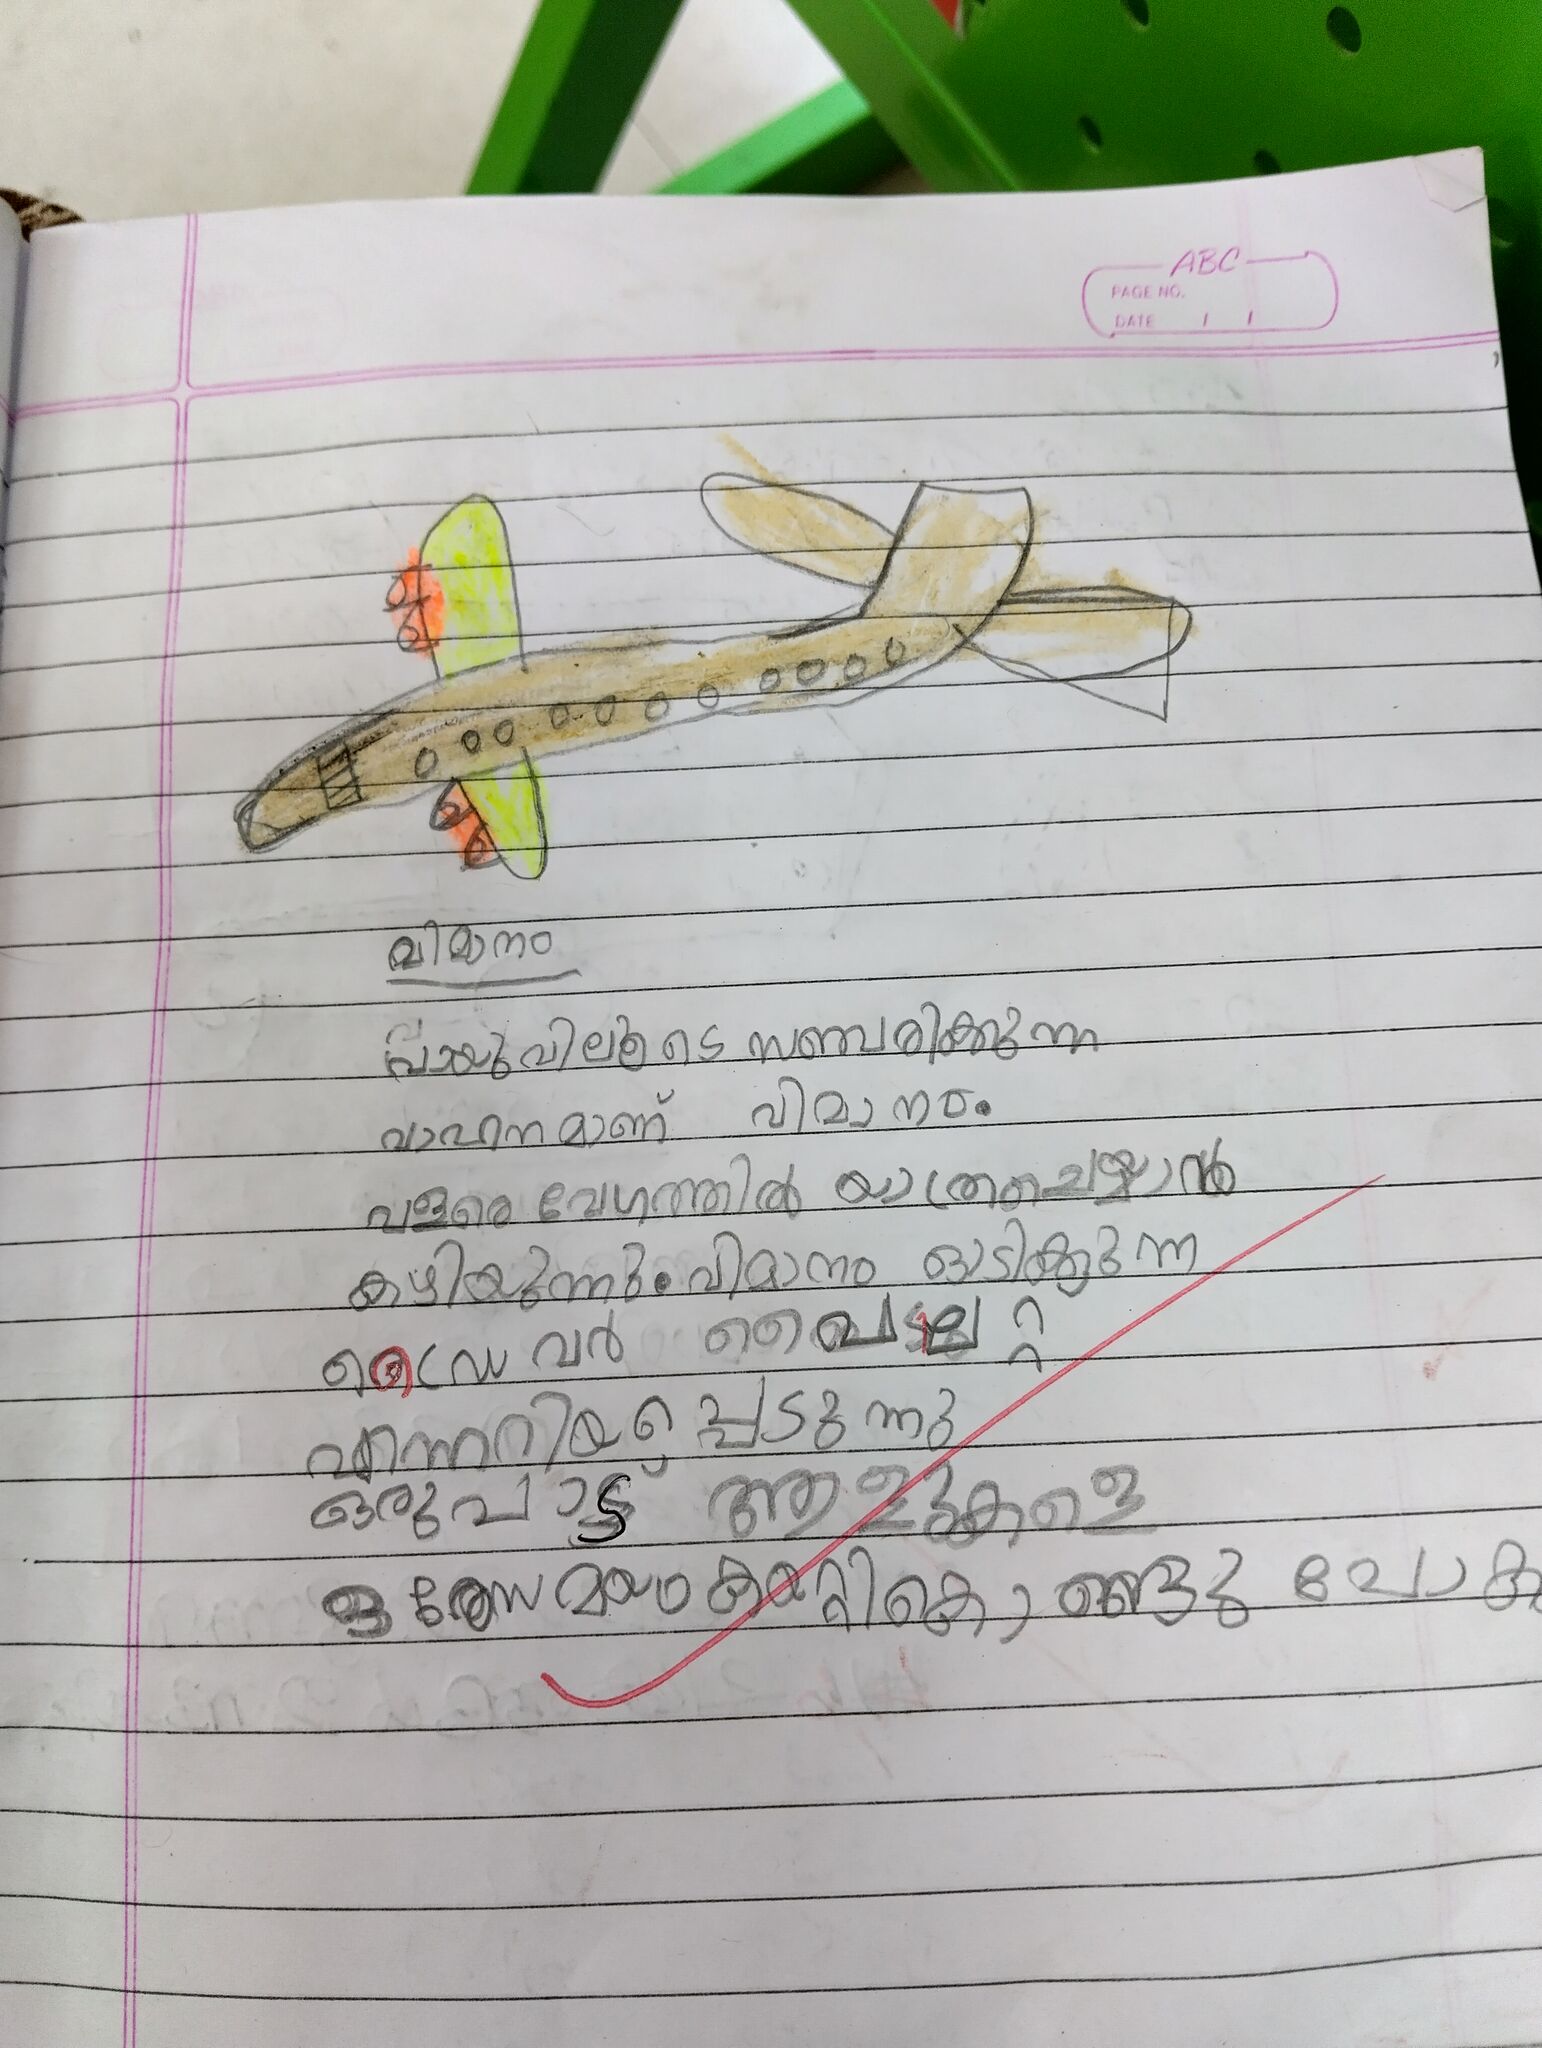 ABC
PAGE NO.
DATE / /
വിമാനം
വായുവിലൂടെ സഞ്ചരിക്കുന്ന
വാഹനമാണ് വിമാനം.
വളരെ വേഗത്തിൽ യാത്രചെയ്യാൻ
കഴിയുന്നു. വിമാനം ഓടിക്കുന്ന
ഡ്രൈവർ പൈലറ്റ്
എന്നറിയപ്പെടുന്നു
ഒരുപാട് ആളുകളെ
കയറ്റികൊണ്ടു